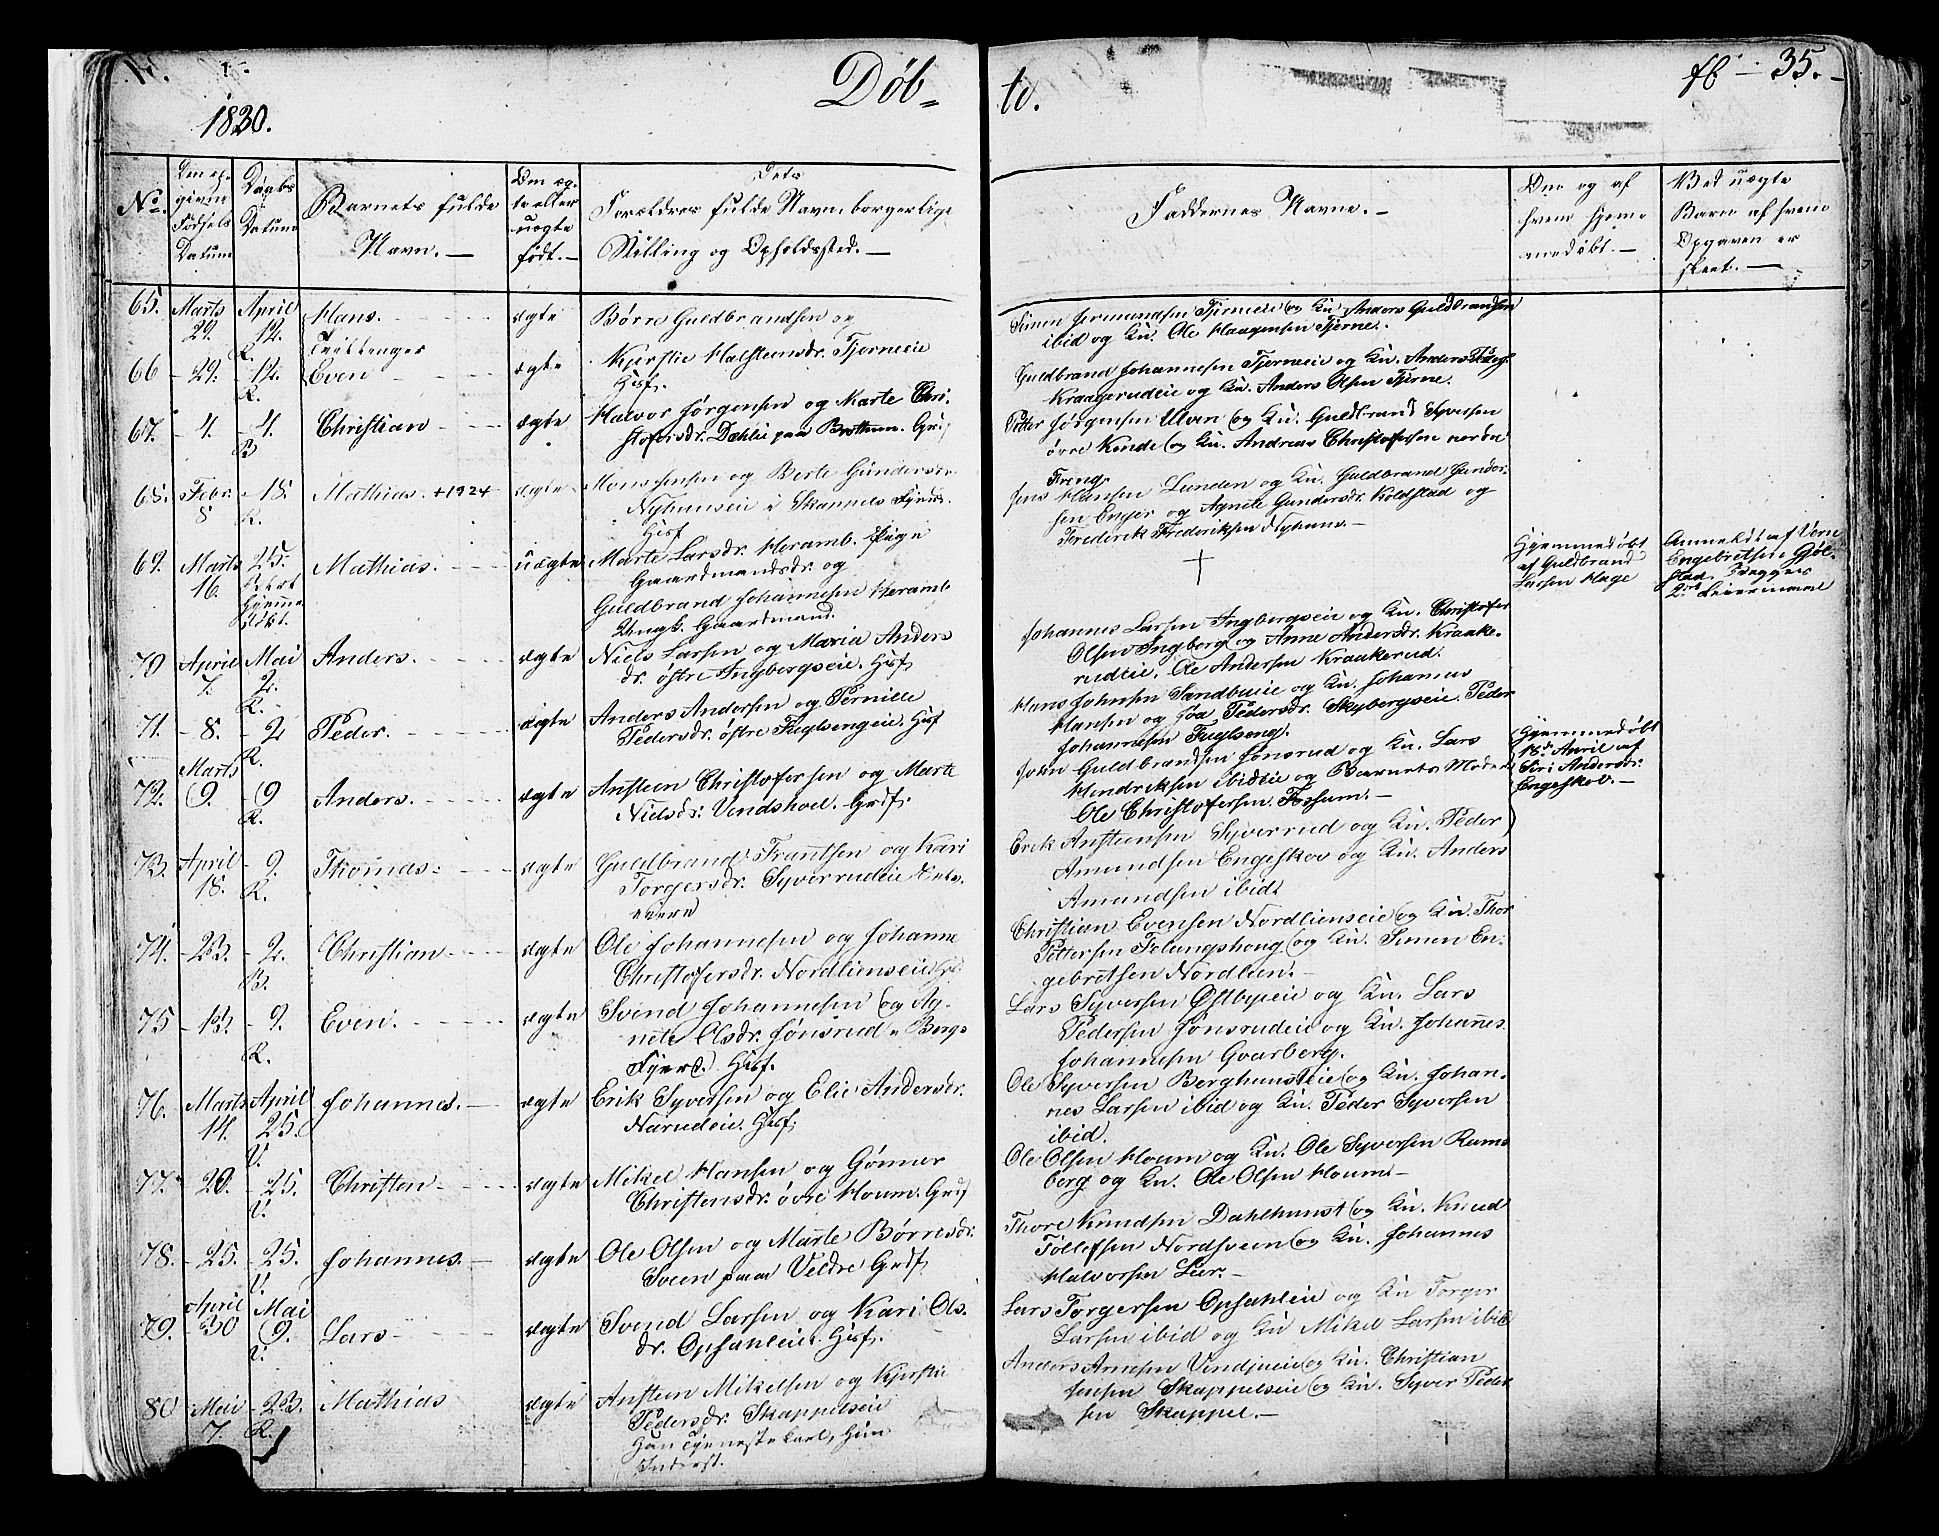 Døb=
te.
fb - 35.
1830.
No.
Den op-
givne
Fødsels
Datum
Daabs
Datum
Barnets fulde
Navn. —
Om æg-
te eller
uægte
født. —
Dets
Forældres fulde Navn, borgerlige
Stilling og Opholdssted. —
Faddernes Navne. —
Om og af
hvem hjem-
medøbt. —
Ved uægte
Børn af hvem
Opgaven er
skeet. —
65. Marts 29. April 12. R. Hans. ægte Børre Guldbrandsen og
Tvillenger
66 - 29. - 12. R. Even ægte Kjerstie Halsteinsdr. Tjerneeie
Husf.
Simen Jermundsen Tjerneeie og Kn. Anders Guldbrandsen
ibid og Kn. Ole Haagensen Tjerne.
Guldbrand Johannesen Tjerneeie og Kn. Anders
Kraagerudeie og Kn. Anders Olsen Tjerne.
67. - 4. - 4. B Christian ægte Halvor Jørgensen og Marte Chri-
stofersdr. Dæhlie paa Grdf
Petter Jørgensen Ulven og Kn. Guldbrand Syversen
øvre Kinde og Kn. Andreas Christofersen nordre
Freng.
68. Febr. 8 - 18. R. Mathias. +1924 ægte Mons Jensen og Berte Gundersdr.
Nyhuuseie i Skannes Fjerd.
Husf
Jens Hansen Lunden og Kn. Guldbrand Gunder-
sen Enger og Agnete Gundersdr. Koldstad og
Frederik Frederiksen Nyhuus. —
69. Marts 16. 25. Hjemme
døbt. Mathias. uægte Marte Larsdr. Heramb. Pige
Gaardmandsdr. og
Guldbrand Johannesen Heramb
Ungk. Gaardmand.
Hjemmedøbt
af Guldbrand
Larsen Hage
Anmeldt af
Engebretsen Gøl-
stad. Begges
2det Leiermaal
70 April 7. Mai 2. R. Anders. ægte Niels Larsen og Maria Anders
dr. østre Ingbergseie. Husf
Johannes Larsen Ingbergseie og Kn. Christofer
Olsen Ingberg og Anne Andersdr. Kraake-
rudeie. Ole Andersen Kraakerud.
71. - 8. - 2 R. Peder. ægte Anders Andersen og Pernille
Pedersdr. østre Fuglsengeie. Husf
Hans Johnsen Sandbueie og Kn. Johannes
Hansen og Joa Pedersdr. Skybergseie. Peder
Johannesen Fuglseng.
72. Marts 9. - 9 R. Anders. ægte Ansteen Christofersen og Marte
Nielsdr. Vendshoel. Grdf.
John Guldbrandsen Jønsrud og Kn. Lars
Hendriksen ibideie og Barnets Moder
Ole Christofersen Fossum. —
Hjemmedøbt
18de April af
Siri Andersdr.
Engeskov. —
73. April 18. - 9. R. Thomas. ægte Guldbrand Frantsen og Kari
Torgersdr. Syverrudeie
Erik Ansteensen Syverrud og Kn. Peder
Amundsen Engeskov og Kn. Anders
Amundsen ibid.
74. - 23. - 2. B. Christian ægte Ole Johannesen og Johanne
Christofersdr. Nordlienseie
Christian Evensen Nordlienseie og Kn. Thor
Pettersen Felangshoug og Kn. Simen En-
gebretsen Nordlien. —
75 - 13. - 9. R. Even. ægte Svend Johannesen og Ag-
nete Olsdr. Jønsrud i Bergs
Fjerd. Husf.
Lars Syversen Østbyeie og Kn. Lars
Pedersen Jønsrudeie og Kn. Johannes
Johannesen Gvarberg.
76. Marts 14. April 25. V. Johannes. ægte Erik Syversen og Elie Andersdr.
Narudeie. Husf.
Ole Syversen Berghuuseie og Kn. Johan-
nes Larsen ibid og Kn. Peder Syversen
ibid.
77. - 20. - 25. V. Christen ægte Mikel Hansen og Gønner
Christensdr. øvre Houm. Grdf
Ole Olsen Houm og Kn. Ole Syversen Rams
berg og Kn. Ole Olsen Houm. —
78. - 25. - 25. V. Johannes. ægte Ole Olsen og Marte Børresdr.
Sveen paa Veldre Grdf
Thore Knudsen Dahlhunst og Kn. Knud
Tollefsen Nordsveen og Kn. Johannes
Halvorsen Lier. —
79. April 30 Mai 9. V. Lars ægte Svend Larsen og Kari Ols-
dr. Opsahleie. Husf.
Lars Torgersen Opsahleie og Kn Torger
Larsen ibid og Kn Mikel Larsen ibid
80 Mai 7. - 23. R. Mathias ægte Ansteen Mikelsen og Kjerstie
Pedersdr. Skappelseie
Han Tjenestekarl, Hun
Inderst.
Anders Arnesen Vindjueie og Kn. Christian
Jensen Skappelseie og Kn. Syver Peder
sen Skappel. —